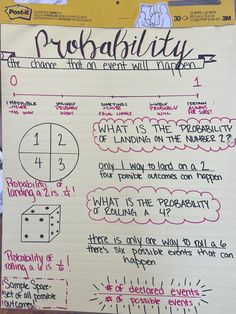 Post-it
30
Probability
the chance that an event will happen
0 1
IMPOSSIBLE UNLIKELY SOMETIMES LIKELY CERTAIN
NEVER PROBABLY PROBABLY ALWAYS
NO WAY WON'T EQUAL CHANCE WILL FOR SURE!
1 2
4 3
WHAT IS THE PROBABILITY
OF LANDING ON THE NUMBER 2?
only 1 way to land on a 2
four possible outcomes can happen
Probability of
landing a 2 is 1/4!
WHAT IS THE PROBABILITY
OF ROLLING A 4?
there is only one way to roll a 6
there's six possible events that can
happen
Probability of
rolling a 6 is 1/6!
Sample Space-
set of all possible
outcomes!
# of declared events
# of possible events